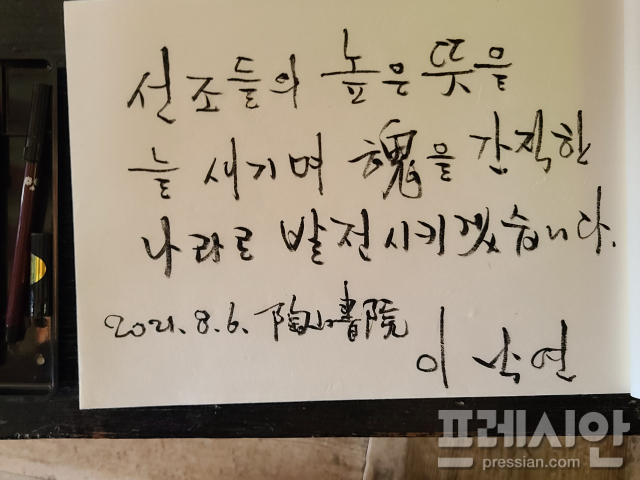 선조들의 높은 뜻을
늘 새기며 魂을 간직한
나라로 발전시키겠습니다.
2021. 8. 6. 陶山書院
이낙연
프레시안
pressian.com